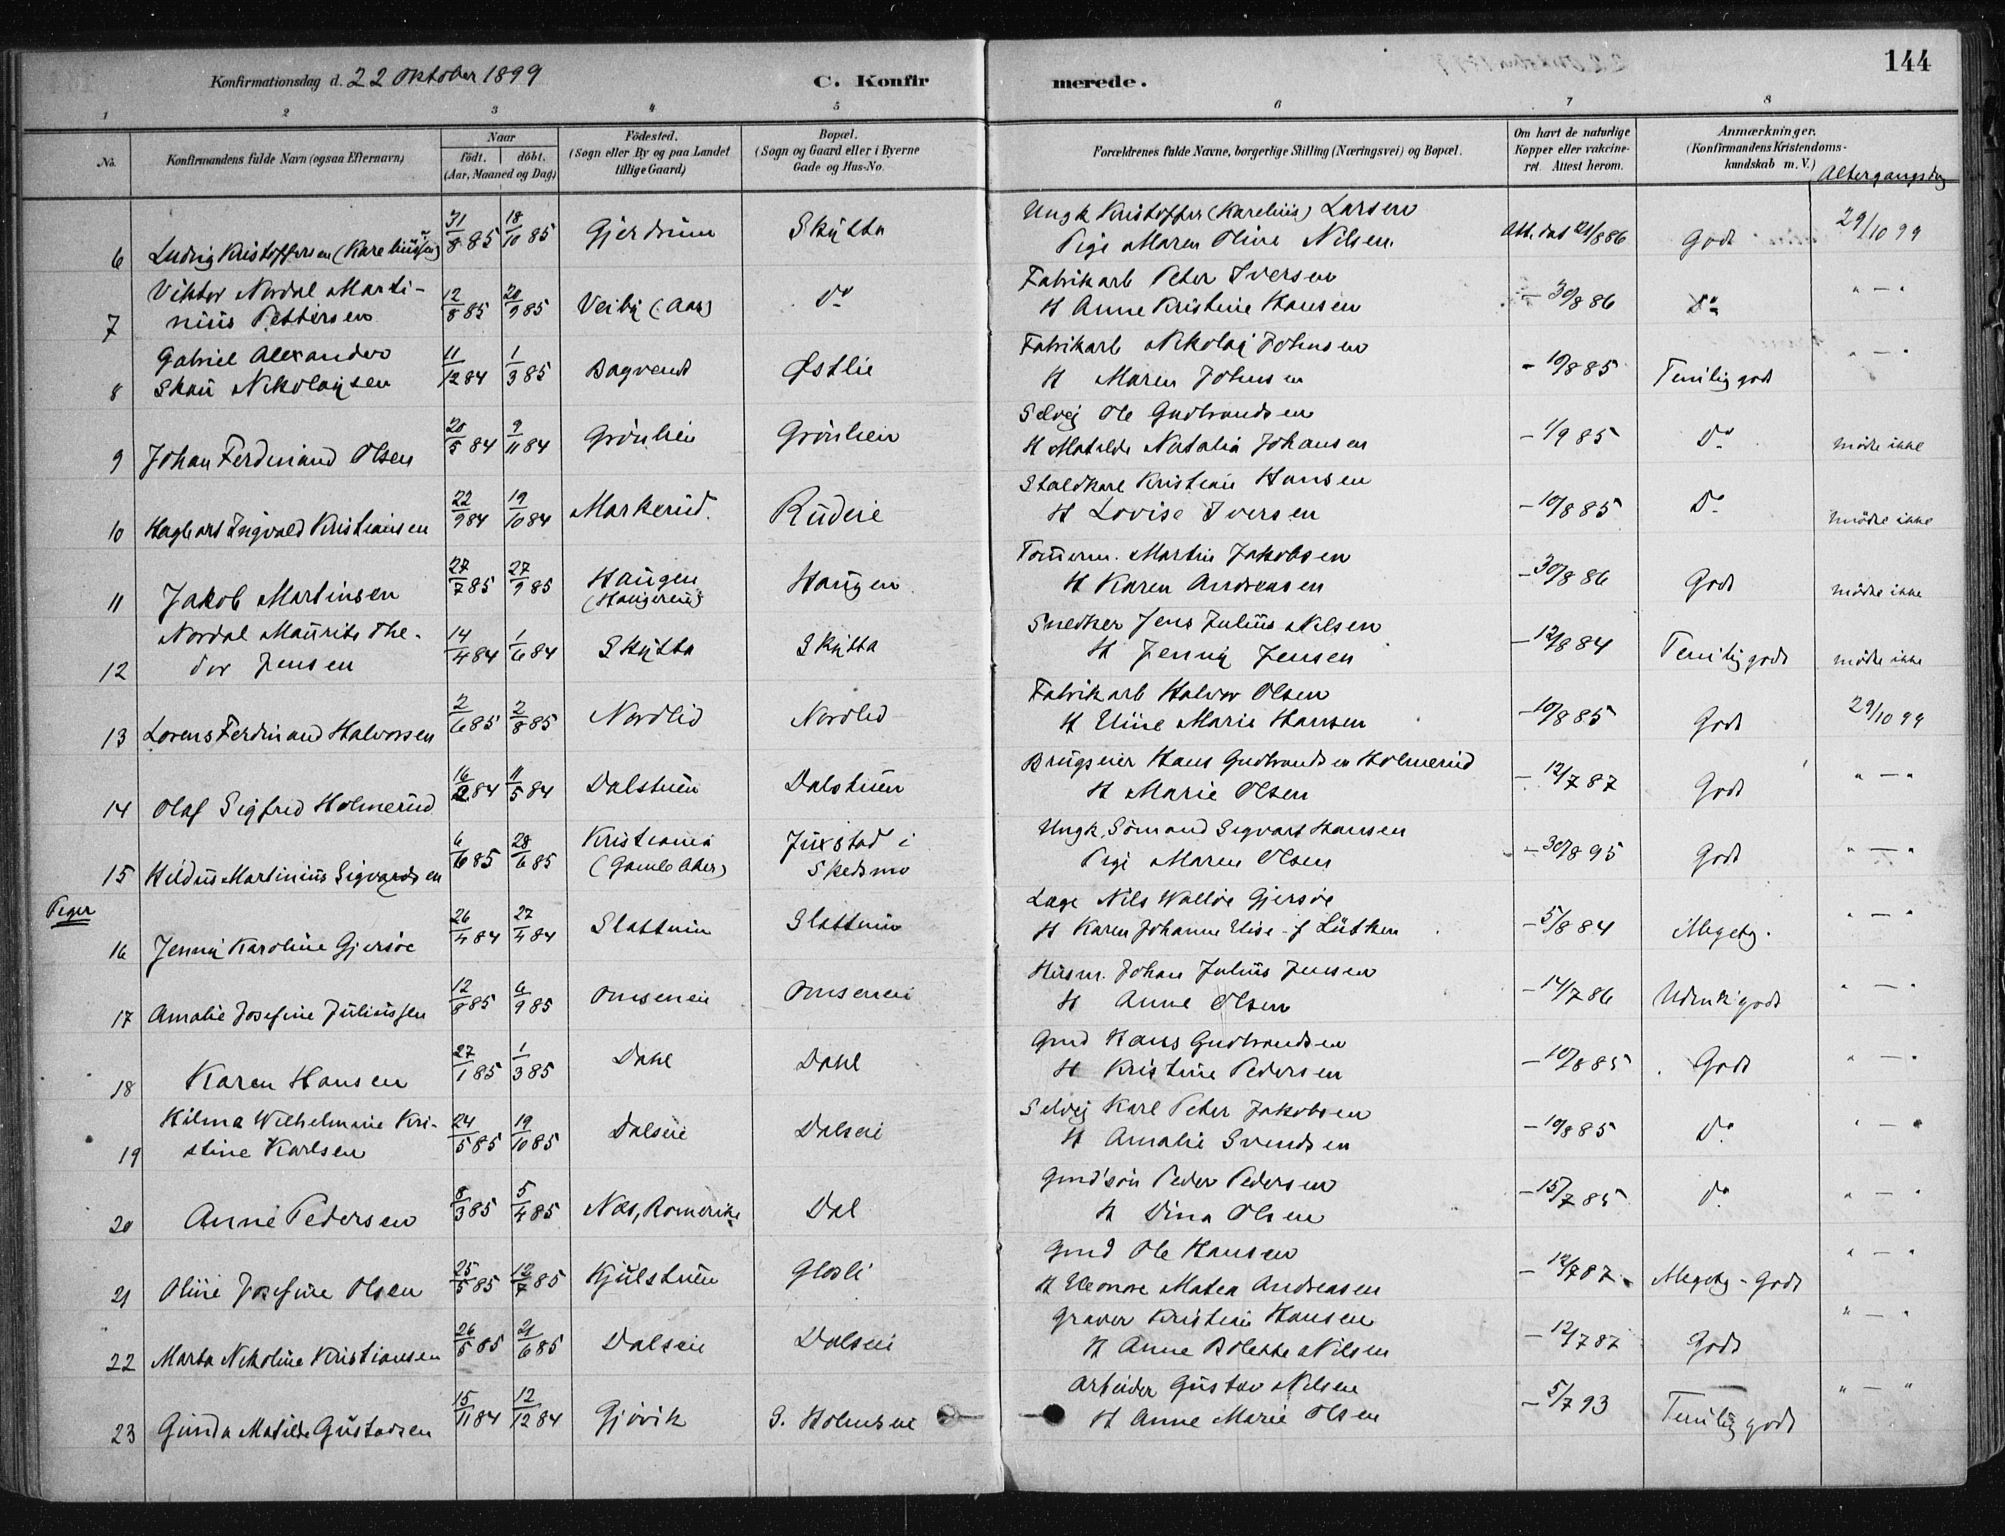 144
Konfirmationsdag d. 22 Oktober 1899 C. Konfir merede.
1 2 3 4 5 6 7 8
No. Konfirmandens fulde Navn (ogsaa Efternavn) Naar födt. döbt. (Aar, Maaned og Dag) Födested. (Sogn eller By og paa Landet tillige Gaard) Bopæl. (Sogn og Gaard eller i Byerne Gade og Hus-No. Forældrenes fulde Navne, borgerlige Stilling (Næringsvei) og Bopæl. Om havt de naturlige Kopper eller vakcineret. Attest herom. Anmærkninger. (Konfirmandens Kristendomskundskab m. V.) Altergangsdag
6 Ludvig Kristoffersen (Kareliussen) 31/8 85 18/10 85 Gjerdrum Skytta Ungk Kristoffer (Karelius) Larsen
Pige Maren Oline Nilsen. Att. dat 21/8 86 Godt 29/10 99
7 Viktor Nordal Marti-
nius Pettersen 12/8 85 20/9 85 Veiby (Aas) Do Fabrikarb Peter Iversen
H Anne Kristine Hansen — 30/8 86 Do " — "
8 Gabriel Alexander
Skau Nikolaysen 11/12 84 1/3 85 Bagvend Østlie Fabrikarb Nikolay Johnsen
H Maren Johnsen - 10/8 85 Temlig godt " — "
9 Johan Ferdinand Olsen 20/5 84 9/11 84 Grönlien Grönlien Selvej Ole Gudbrandsen
H Matilde Natalia Johansen — 1/9 85 Do mödte ikke
10 Hagbart Ingvald Kristiansen 22/9 84 19/10 84 Markerud Rudeie Staldkarl Kristian Hansen
H Lovise Iversen — 10/8 85 Do mödte ikke
11 Jakob Martinsen 27/7 85 27/9 85 Haugen
(Haugereie) Haugen Tömerm. Martin Jakobsen
H Karen Andreasen — 30/8 86 Godt mödte ikke
12 Nordal Maurits The-
dor Jensen 14/4 84 1/6 84 Skytta Skytta Snedker Jens Julius Nilsen
H Jenny Jensen — 12/8 84 Temlig godt mödte ikke
13 Lorens Ferdinand Halvorsen 2/6 85 2/8 85 Nordlid Nordlid Fabrikarb Halvor Olsen
H Eline Marie Hansen — 10/8 85 Godt 29/10 99
14 Olaf Sigfred Holmerud 16/2 84 11/5 84 Dalstuen Dalstuen Brugseier Hans Gudbrandsen Holmerud
H Marie Olsen — 12/7 87 Godt " — "
15 Hildus Martinius Sigvardsen 6/6 85 28/6 85 Kristiania
(Gamle Aker) Juxstad i
Skedsmo Ungk. Sömand Sigvart Hansen
Pige Maren Olsen — 30/8 95 Godt " — "
Piger
16 Jenny Karoline Gjersøe 26/4 84 27/4 84 Slattum Slattum Læge Nils Walløe Gjersøe
H Karen Johanne Elise f Lütken — 5/8 84 Megetg. " — "
17 Amalie Josefine Juliussen 12/8 85 6/9 85 Omseneie Omseneie Husm. Johan Julius Jensen
H Anne Olsen — 14/7 86 Udmk godt " — "
18 Karen Hansen 27/1 85 1/3 85 Dahl Dahl Gmd Hans Gudbrandsen
H Kristine Pedersen — 10/8 85 Godt " — "
19 Hilma Wilhelmine Kri-
stine Karlsen 24/5 85 19/10 85 Dalseie Dalseie Selvej Karl Peter Jakobsen
H Amalie Svendsen — 10/8 85 Do " — "
20 Anne Pedersen 8/3 85 5/4 85 Næs, Romerike Dal Gmd'sön Peder Pedersen
H Dina Olsen — 15/7 85 Do " — "
21 Oline Josefine Olsen 25/5 85 12/7 85 Kjulstuen Glosli Gmd Ole Hansen
H Eleonore Matea Andreasen — 12/7 87 Megetg - Godt " — "
22 Marta Nikoline Kristiansen 26/5 85 21/6 85 Dalseie Dalseie Graver Kristian Hansen
H Anne Bolette Nilsen — 12/7 87 Godt " — "
23 Gunda Matilde Gustavsen 15/11 84 12/12 84 Gjövik S. Holmseie Arbeider Gustav Nilsen
H Anne Marie Olsen — 5/7 93 Temlig godt " — "